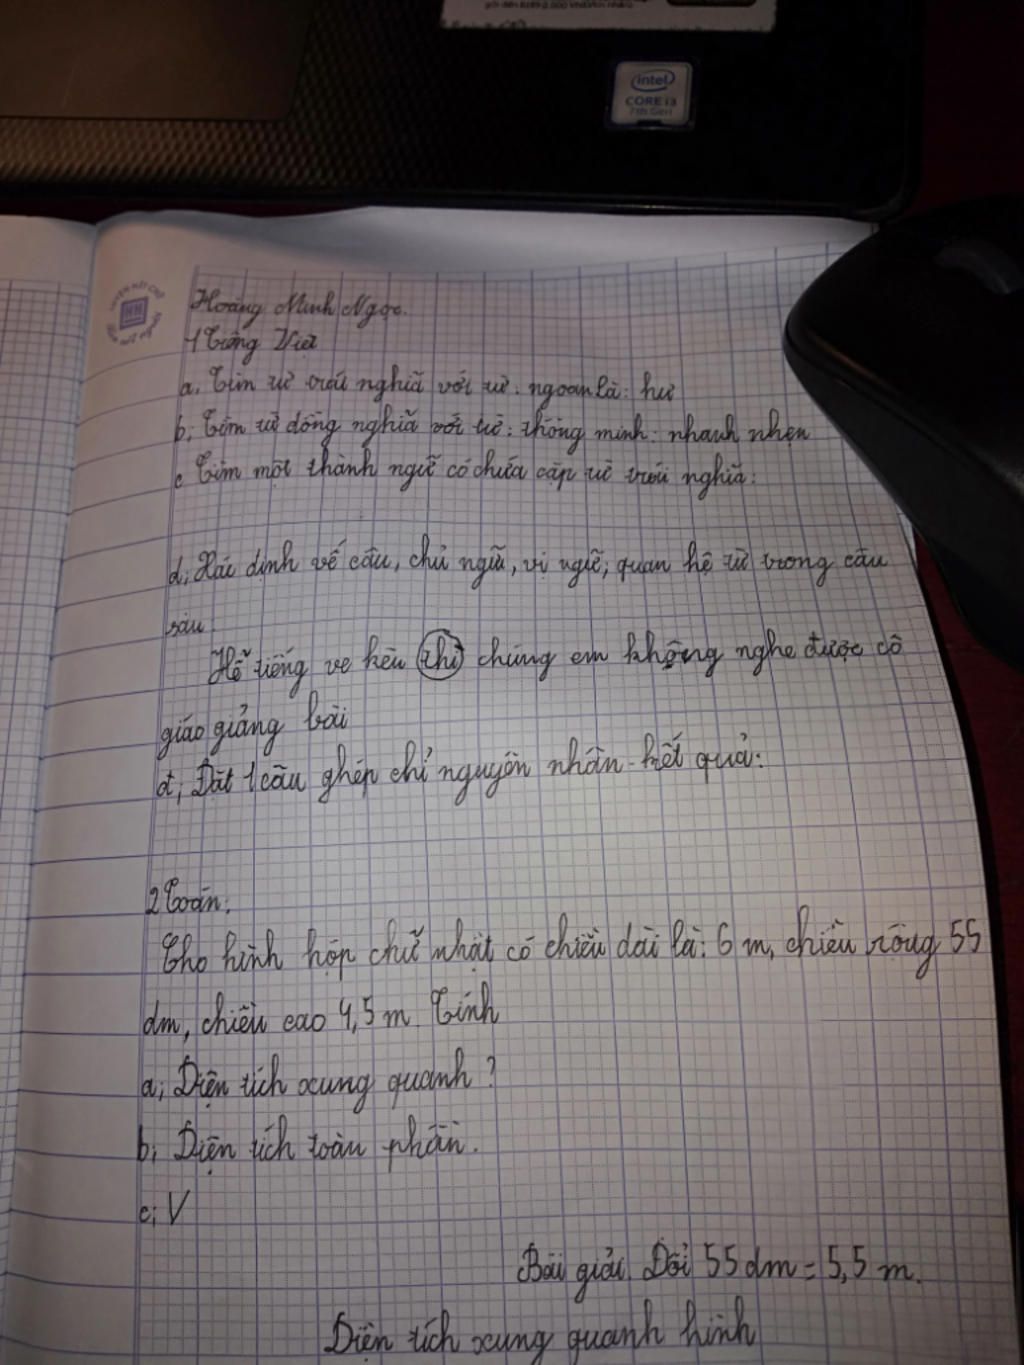 intel
CORE i3
7th Gen
Hoàng Minh Ngọc.
1 Tiếng Việt
a, Tìm từ trái nghĩa với từ: ngoan là: hư
b, Tìm từ đồng nghĩa với từ: thông minh: nhanh nhẹn
c Tìm một thành ngữ có chứa cặp từ trái nghĩa:
d, Xác định vế câu, chủ ngữ, vị ngữ, quan hệ từ trong câu
sau:
Hễ tiếng ve kêu thì chúng em không nghe được cô
giáo giảng bài
đ, Đặt 1 câu ghép chỉ nguyên nhân - kết quả:
2 Toán:
Cho hình hộp chữ nhật có chiều dài là: 6 m, chiều rộng 55
dm, chiều cao 4,5 m. Tính
a, Diện tích xung quanh?
b, Diện tích toàn phần.
c, V
Bài giải. Đổi 55 dm = 5,5 m.
Diện tích xung quanh hình